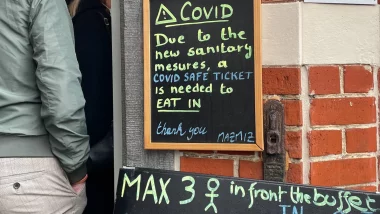 ⚠ COVID
Due to the
new sanitary
mesures, a
COVID SAFE TICKET
is needed to
EAT IN
thank you MAZMIZ
MAX 3 in front the buffet
IN